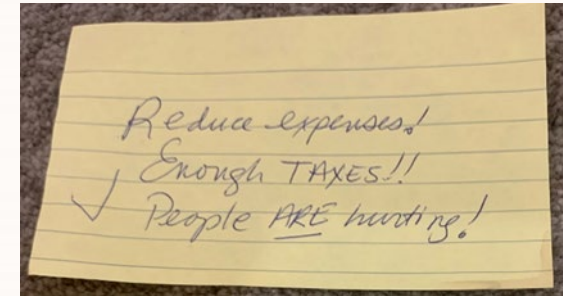 Reduce expenses!
Enough TAXES!!
People ARE hurting!